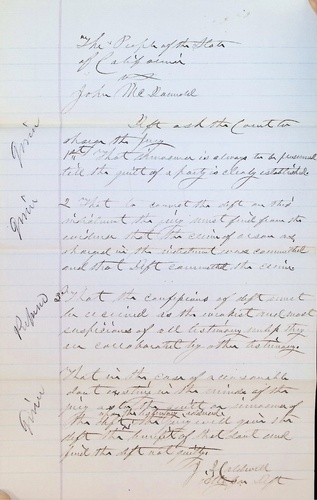 The People of the State
of California
vs
John McDannald
Deft ask the Court to
charge the jury
1st That innocence is always to be presumed
till the guilt of a party is clearly established
Given
2 That to convict the deft on this
indictment the jury must find from the
evidence that the crime of arson as
charged in the indictment was committed
and that Deft committed the crime
Given
3rd That the confessions of deft must
be received as the weakest and most
suspicious of all testimony unless they
are collaborated by other testimony
Refused
That in the case of a reasonable
doubt existing in the minds of the
jury as to the guilt or innocence of
the deft, the jury will give the
deft the benefit of that doubt and
find the deft not guilty
Given
J Caldwell
for Deft